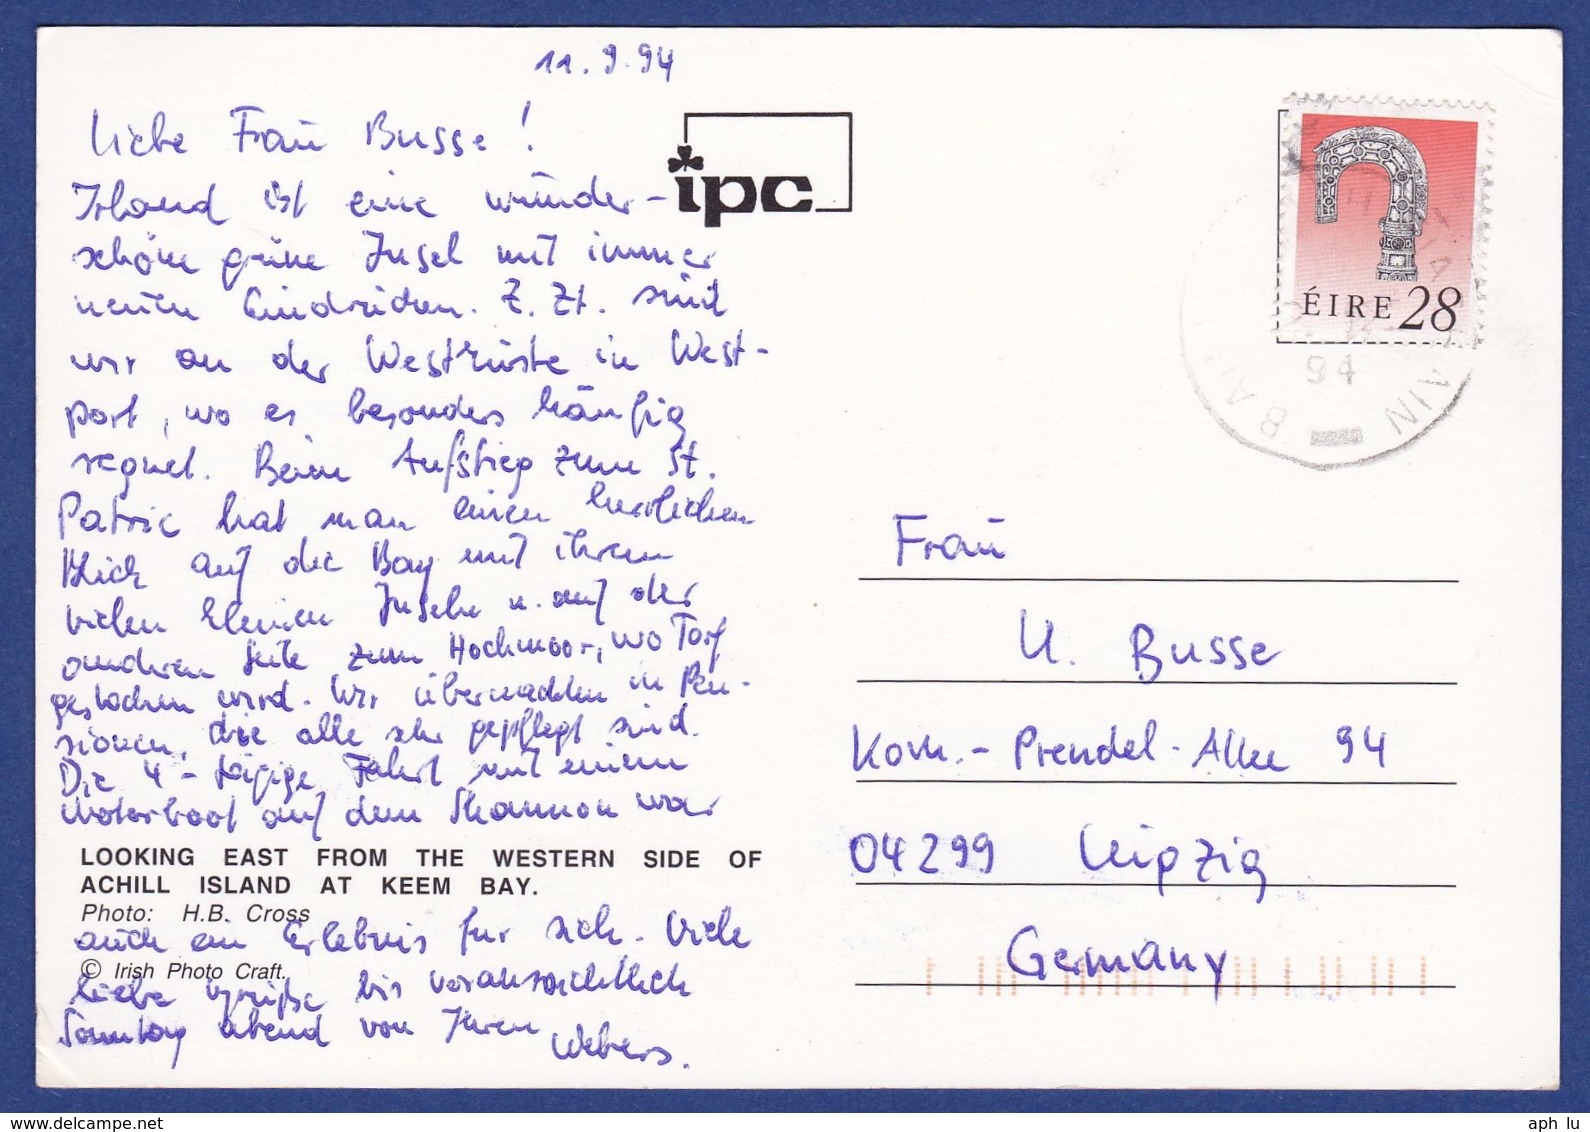 11.9.94
Liebe Frau Busse!
Irland ist eine wunder-
schöne grüne Insel mit immer
neuen Eindrücken. Z. Zt. sind
wir an der Westküste in West-
port, wo es besonders häufig
regnet. Beim Aufstieg zum St.
Patric hat man einen herrlichen
Blick auf die Bay mit ihren
vielen kleinen Inseln u. auf der
anderen Seite zum Hochmoor, wo Torf
gestochen wird. Wir übernachten in Pen-
sionen, die alle sehr gepflegt sind.
Die 4-tägige Fahrt mit einem
Motorboot auf dem Shannon war
LOOKING EAST FROM THE WESTERN SIDE OF
ACHILL ISLAND AT KEEM BAY.
Photo: H.B. Cross
auch ein Erlebnis für sich. Viele
© Irish Photo Craft.
liebe Grüße bis voraussichtlich
Sonntag abend von Ihren
Webers.
ipc
ÉIRE 28
94
Frau
U. Busse
Korn.-Prendel-Allee 94
04299 Leipzig
Germany
aph lu